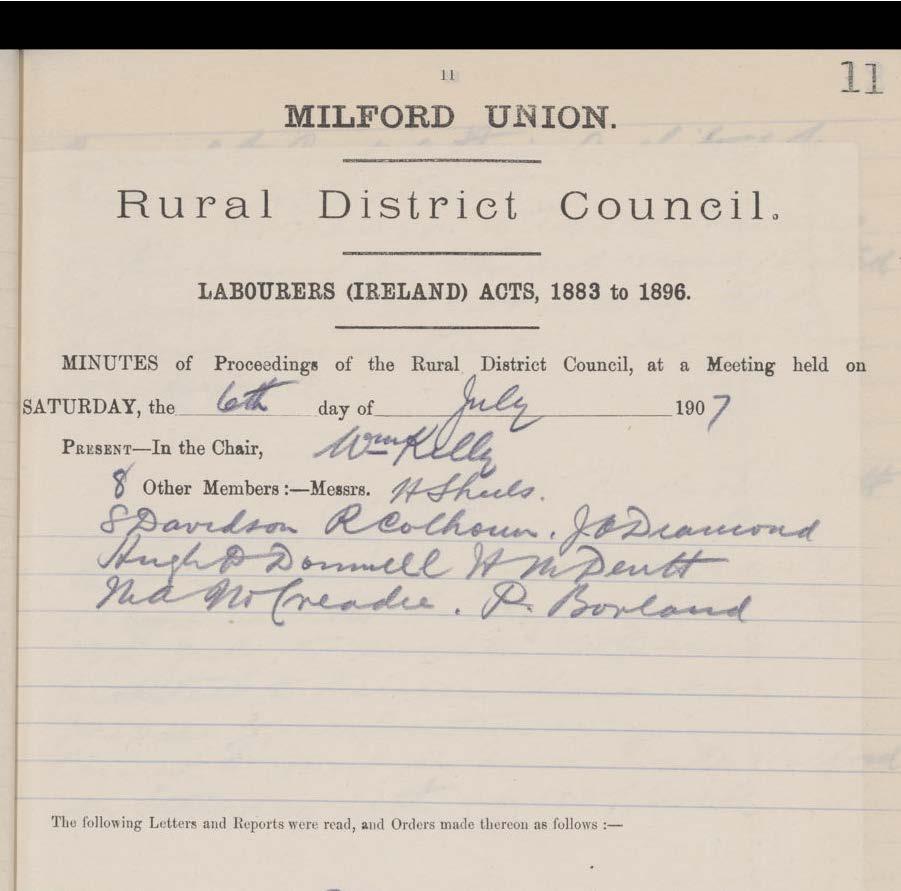 11
11
MILFORD UNION.
Rural District Council.
LABOURERS (IRELAND) ACTS, 1883 to 1896.
MINUTES of Proceedings of the Rural District Council, at a Meeting held on
SATURDAY, the 6th day of July 1907
PRESENT—In the Chair, Wm Kelly
8 Other Members:—Messrs. H Sheils.
S Davidson R Colhoun. J A Diamond
Hugh O Donnell H McDevitt
McCreadie. P. Borland
The following Letters and Reports were read, and Orders made thereon as follows :—